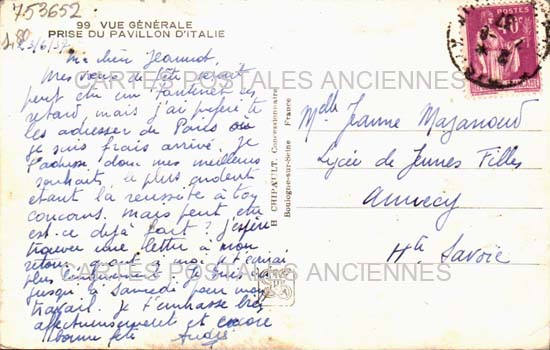 753652
99 VUE GÉNÉRALE
PRISE DU PAVILLON D'ITALIE
23/6/37
Ma chère Jeannot.
Mes vœux de fête seront
peut être un tantinet en
retard, mais j'ai préféré te
les adresser de Paris où
je suis frais arrivé. Je
t'adresse donc mes meilleurs
souhaits, le plus ardent
étant la réussite à ton
concours. Mais peut être
est-ce déjà fait ? J'espère
trouver une lettre à mon
retour, quant à moi je t'écrirai
plus longuement. Je suis ici
jusqu'à samedi pour mon
travail. Je t'embrasse très
affectueusement et encore
bonne fête André
H. CHIPAULT, Concessionnaire
Boulogne-sur-Seine France
Melle Jeanne Mazanoud
Lycée de Jeunes Filles
Annecy
Hte Savoie
CARTES POSTALES ANCIENNES
CARTES POSTALES ANCIENNES